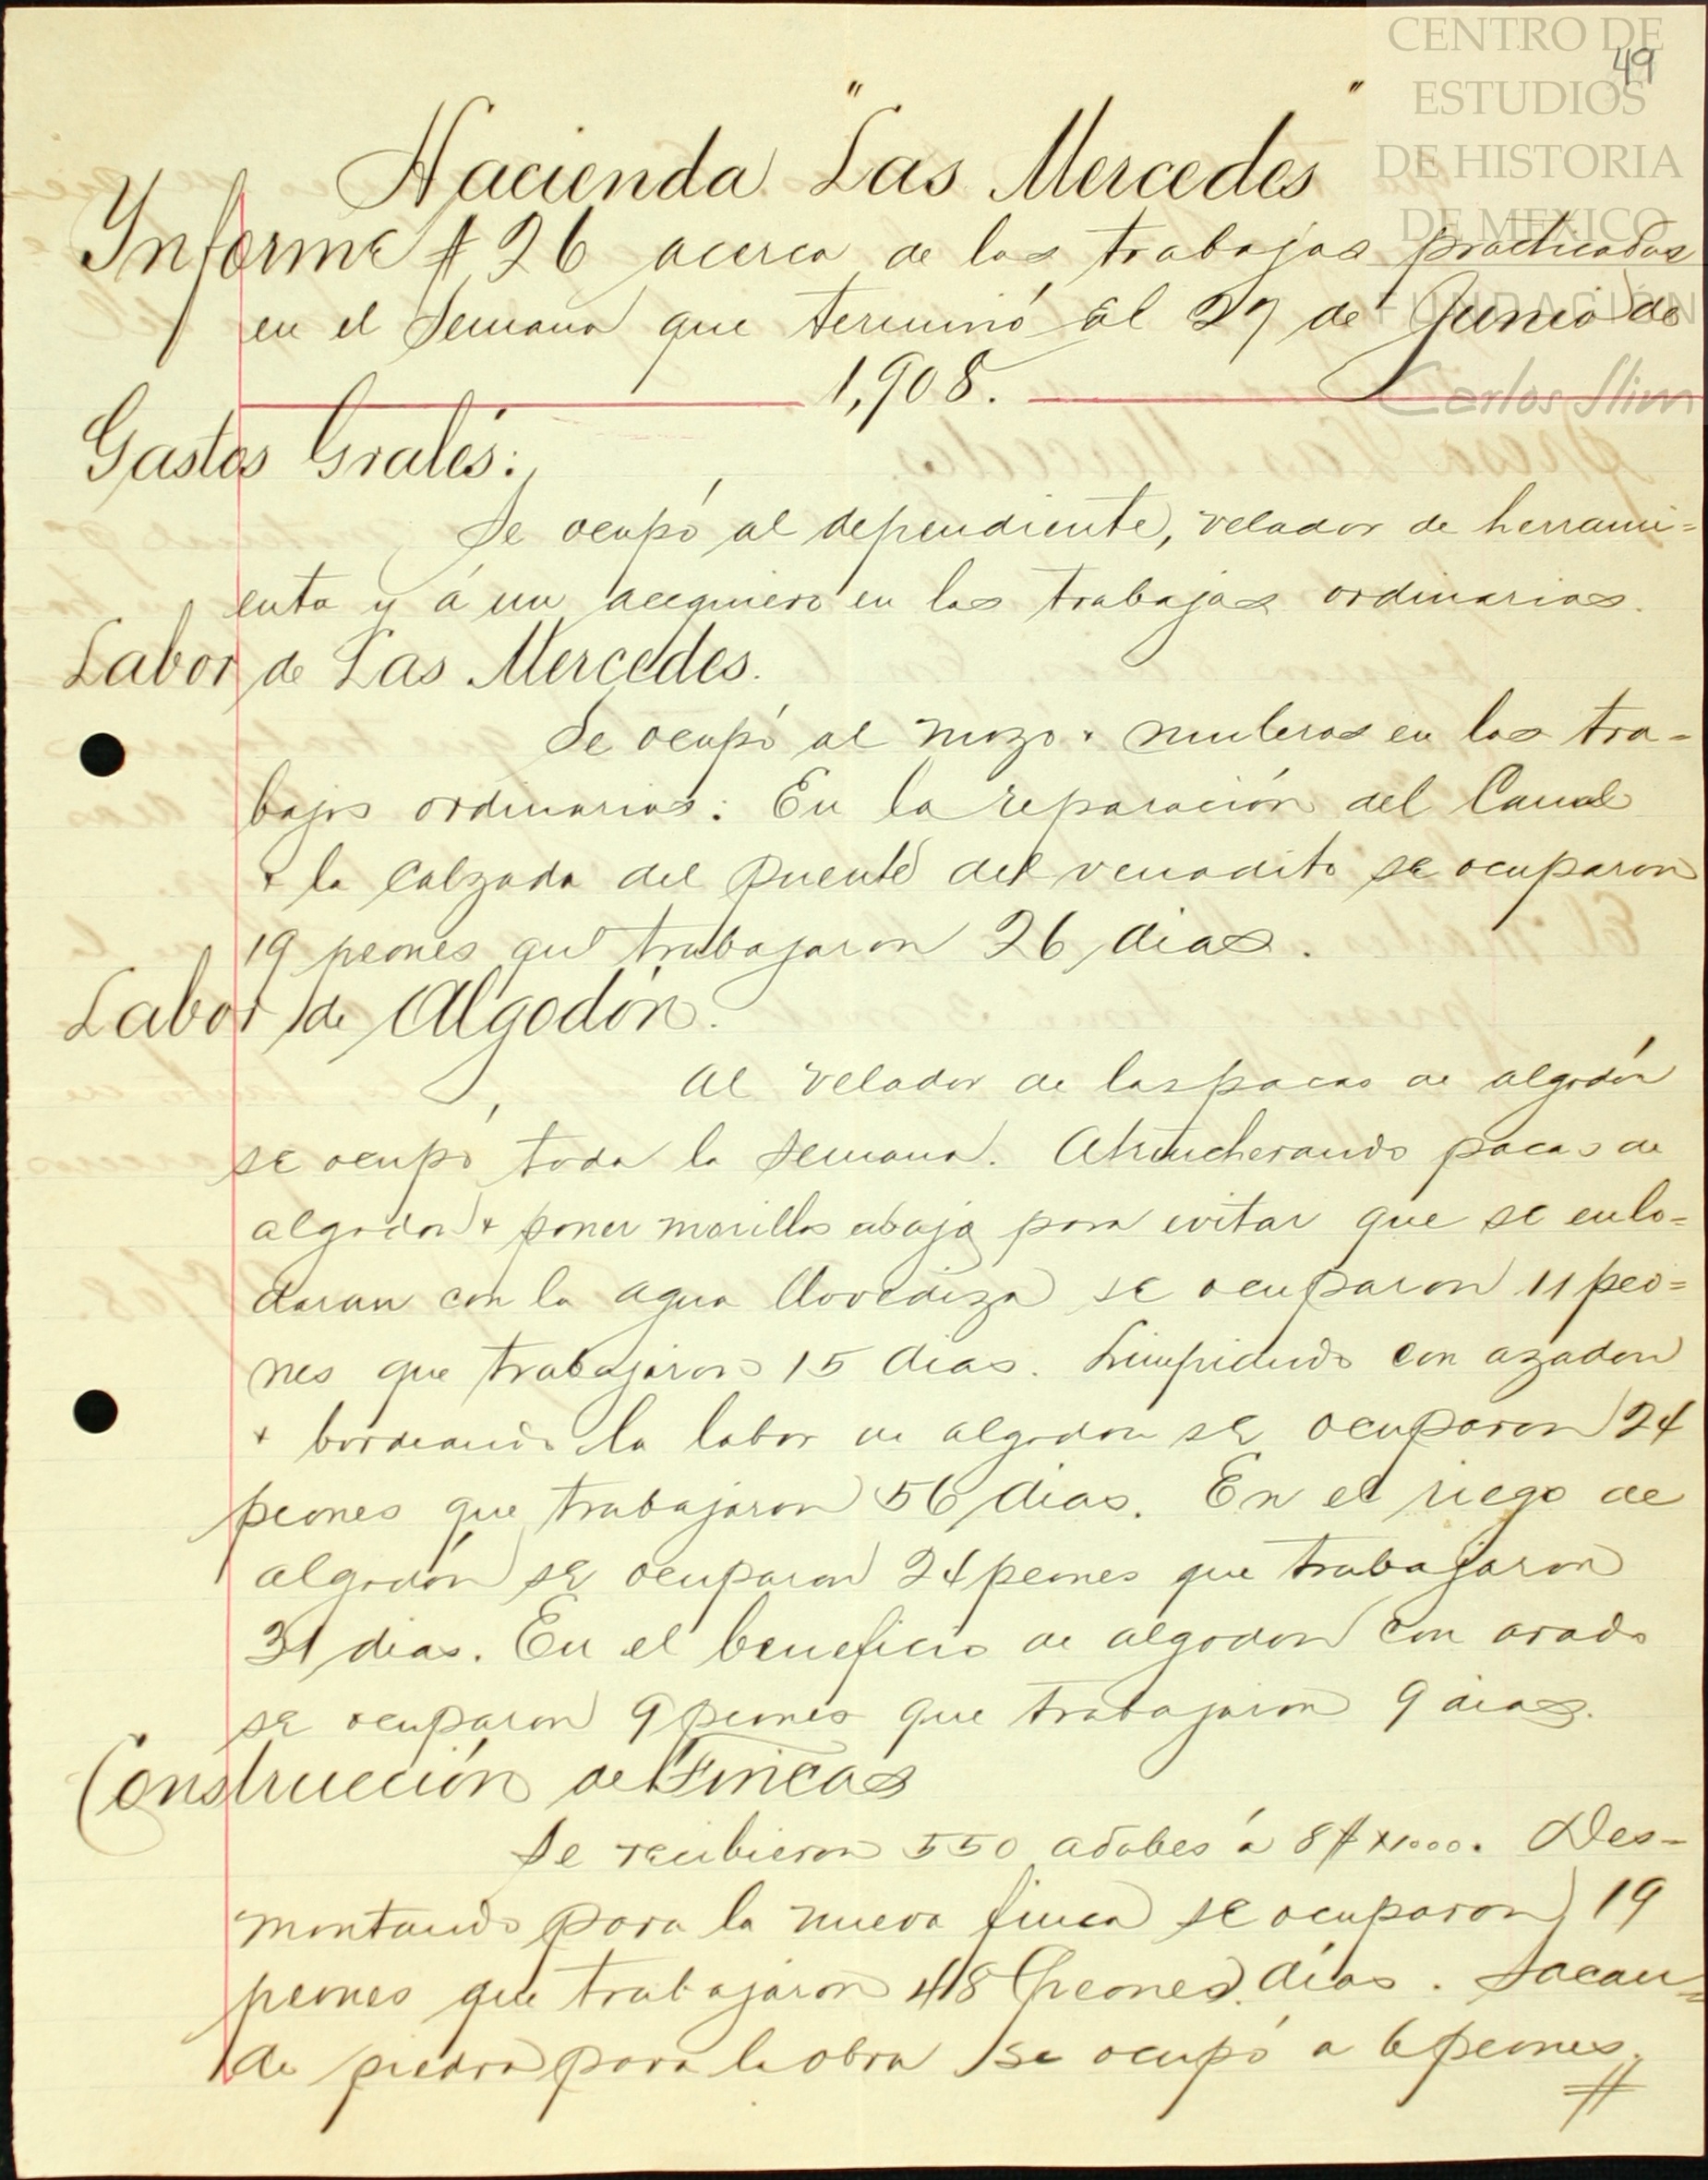 CENTRO DE
ESTUDIOS
DE HISTORIA
DE MEXICO
FUNDACIÓN
Carlos Slim
49
Hacienda "Las Mercedes"
Ynforme # 26 acerca de los trabajos practicados
en el Semana que terminó al 27 de Junio de
1,908.
Gastos Grales:
Se ocupó al dependiente, velador de herrami=
enta y á un acequiero en los trabajos ordinarios.
Labor de Las Mercedes.
Se ocupó al mozo + muleros en los tra=
bajos ordinarios: En la reparación del Canal
+ la Calzada del Puente del venadito se ocuparon
19 peones que trabajaron 26 dias.
Labor de Algodón.
Al velador de las pacas de algodón
se ocupó toda la semana. Atrincherando pacas de
algodon + poner morillos abajo para evitar que se enlo=
daran con la agua llovediza se ocuparon 11 peo=
nes que trabajaron 15 dias. Limpiando con azadon
+ bordeando la labor de algodon se ocuparon 24
peones que trabajaron 56 dias. En el riego de
algodón se ocuparon 24 peones que trabajaron
31 dias. En el beneficio de algodon con arado
se ocuparon 9 peones que trabajaron 9 dias.
Construcción de Fincas
Se recibieron 550 adobes á 8$ x 1000. Des=
montando para la nueva finca se ocuparon 19
peones que trabajaron 48 (peones) dias. Sacan=
do piedra para la obra se ocupó a 6 peones.
//